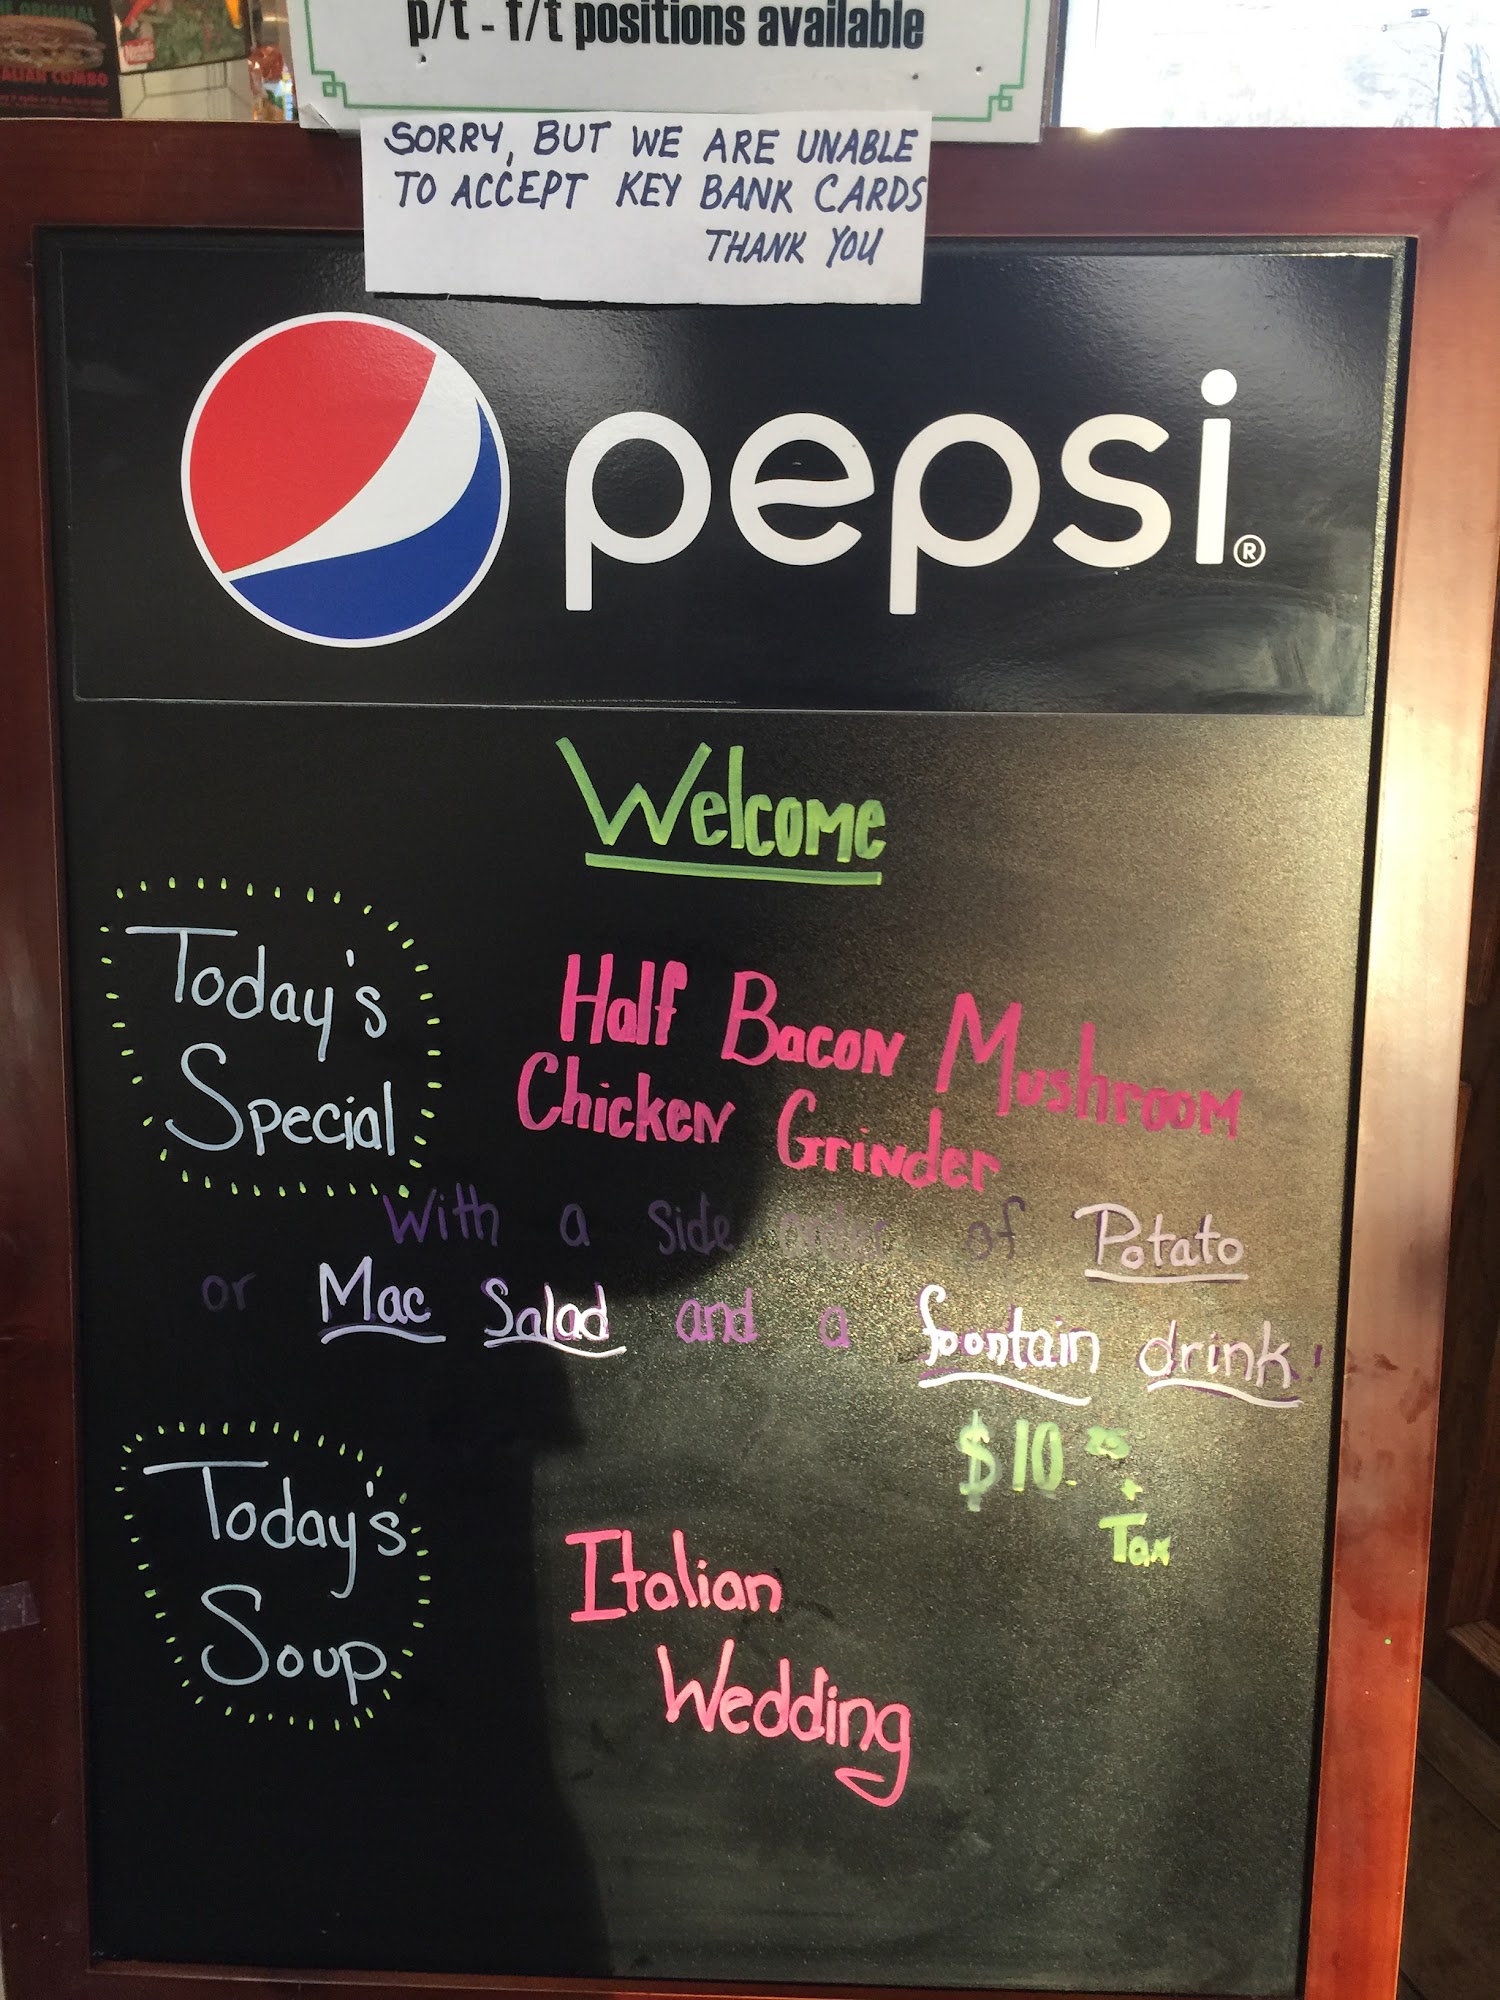 THE ORIGINAL
ITALIAN COMBO
p/t - f/t positions available
SORRY, BUT WE ARE UNABLE
TO ACCEPT KEY BANK CARDS
THANK YOU
pepsi®
Welcome
Today's
Special
Half Bacon Mushroom
Chicken Grinder
With a side order of Potato
or Mac Salad and a fountain drink!
$10.25
+
Tax
Today's
Soup
Italian
Wedding